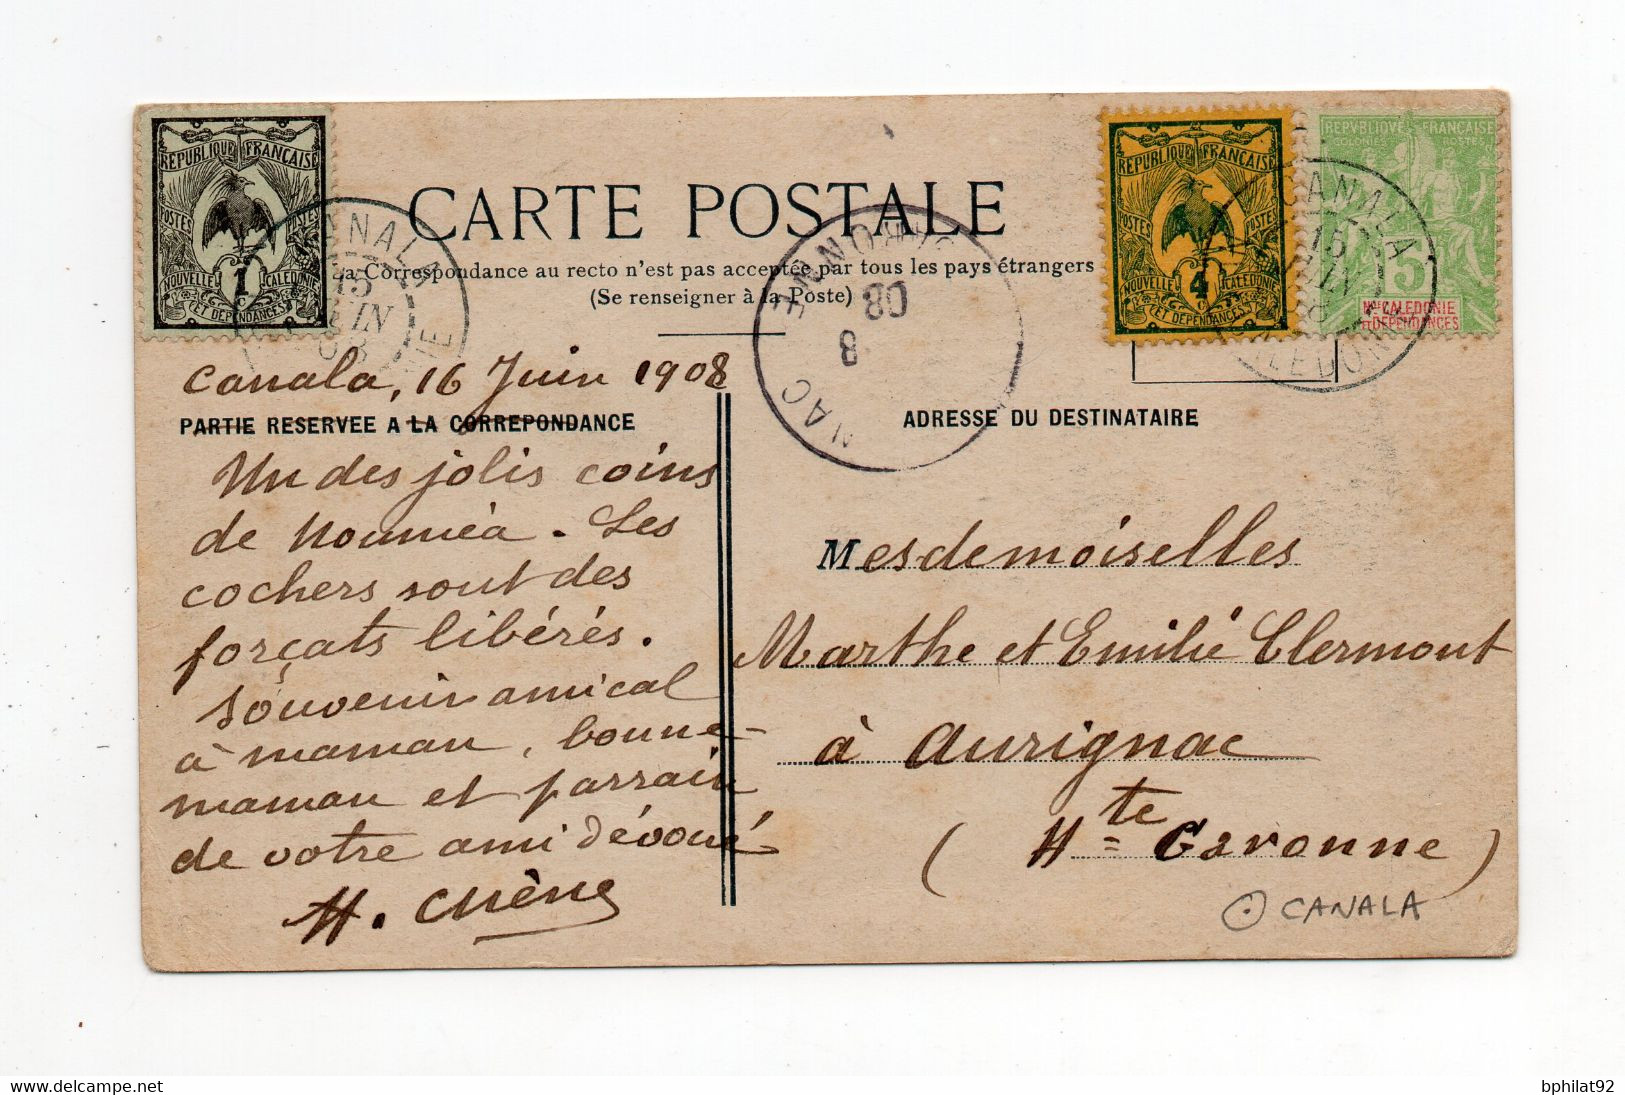 REPUBLIQUE FRANÇAISE
POSTES POSTES
1 C
NOUVELLE CALEDONIE
ET DEPENDANCES
CANALA
15
JUIN
08
CARTE POSTALE
la Correspondance au recto n'est pas acceptée par tous les pays étrangers
(Se renseigner à la Poste)
GARONNE
08
8
NAC
REPUBLIQUE FRANÇAISE
POSTES POSTES
4 C
NOUVELLE CALEDONIE
ET DEPENDANCES
REPVBLIQVE FRANÇAISE
COLONIES POSTES
5
Nlle CALEDONIE
ET DEPENDANCES
CANALA
15
JUIN
CALEDONIE
Canala, 16 Juin 1908
PARTIE RESERVEE A LA CORREPONDANCE
Un des jolis coins
de Nouméa. Les
cochers sont des
forçats libérés.
Souvenir amical
à maman, bonne-
maman et parrain
de votre ami dévoué
ADRESSE DU DESTINATAIRE
Mesdemoiselles
Marthe et Emilie Clermont
à Aurignac
(Hte Garonne)
CANALA
bphilat92